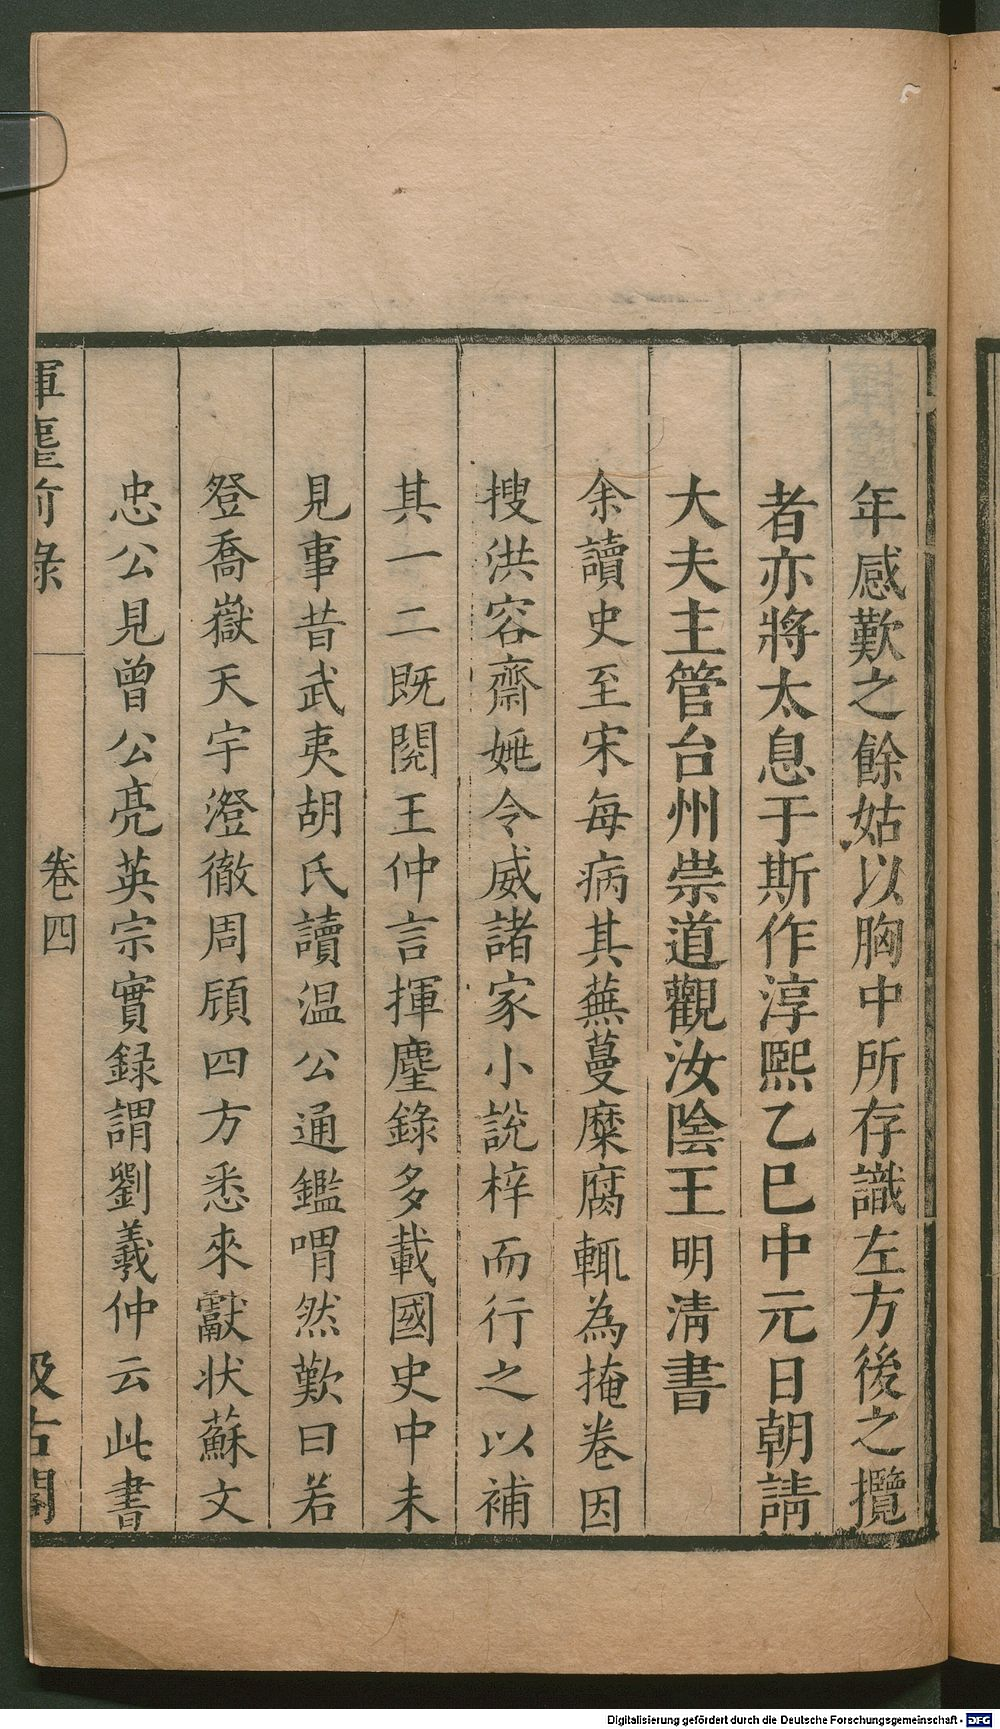 年感歎之餘姑以胸中所存識左方後之攬
者亦將太息于斯作淳熙乙巳中元日朝請
大夫主管台州崇道觀汝陰王明清書
余讀史至宋每病其蕪蔓糜腐輒為掩卷因
搜洪容齋姚令威諸家小說梓而行之以補
其一二既閱王仲言揮麈錄多載國史中未
見事昔武夷胡氏讀温公通鑑喟然歎曰若
登喬嶽天宇澄徹周顧四方悉來獻状蘇文
忠公見曾公亮英宗實録謂劉羲仲云此書
揮麈前錄
卷四
汲古閣
Digitalisierung gefördert durch die Deutsche Forschungsgemeinschaft - DFG